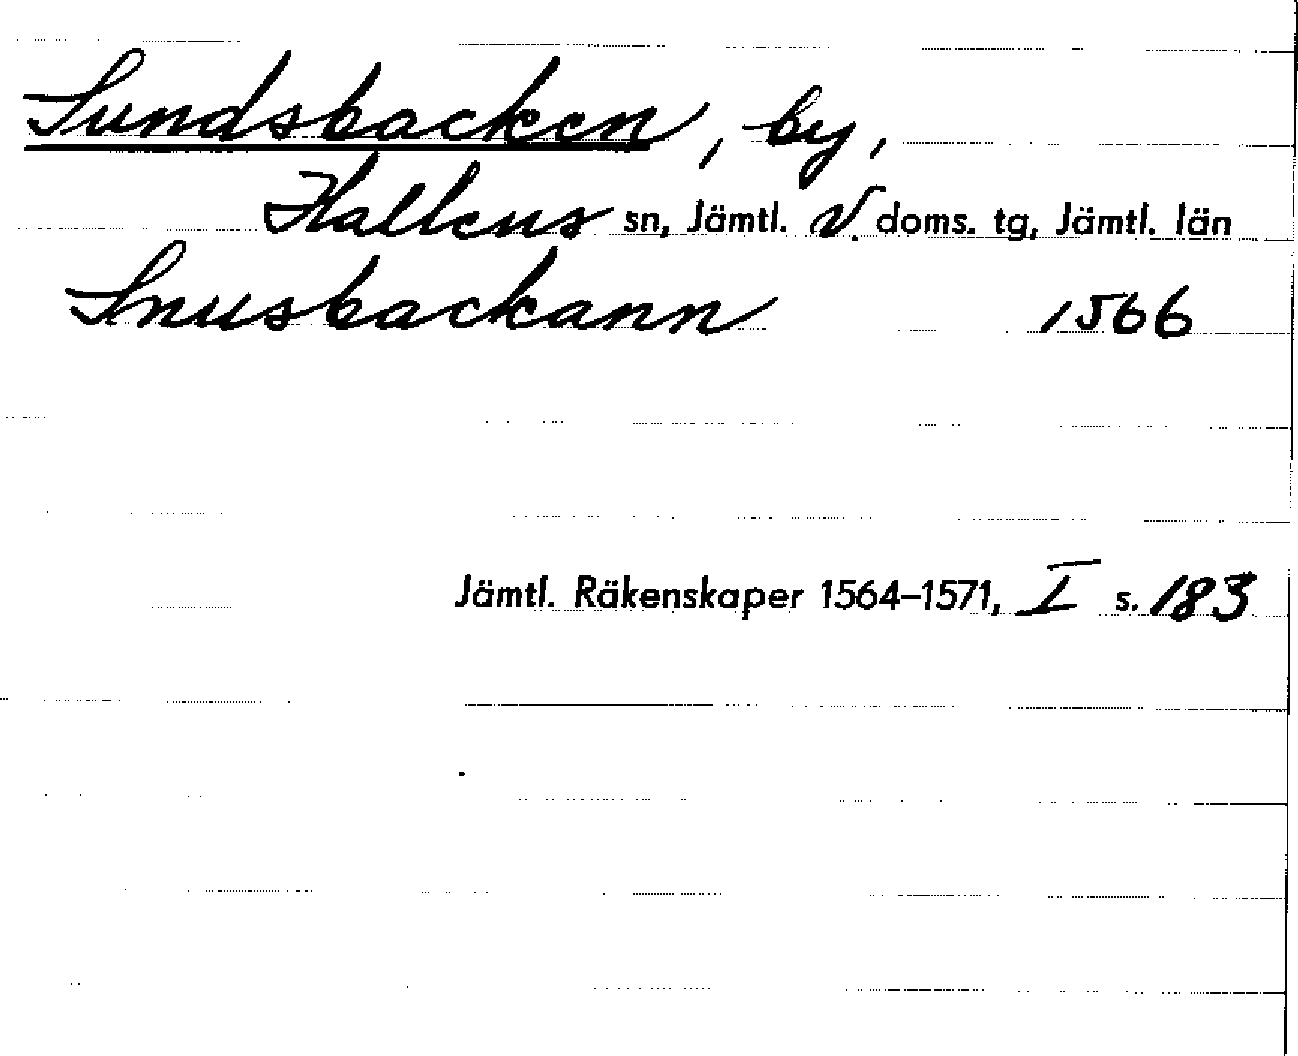 Sundsbacken, by,
Hallens sn, Jämtl. V. doms. tg, Jämtl. län
Snusbackann 1566
Jämtl. Räkenskaper 1564–1571, I s. 183